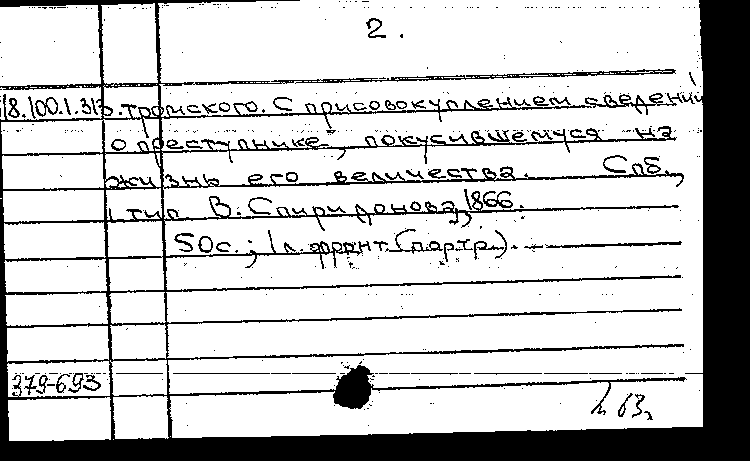 2.
18.100.1.313 .тромского. С присовокуплением сведений
о преступнике, покусившемуся на
жизнь его величества. Спб.,
тип В. Спиридонова, 1866.
50с.; 1 л. фронт. (портр.).
379-693
63.